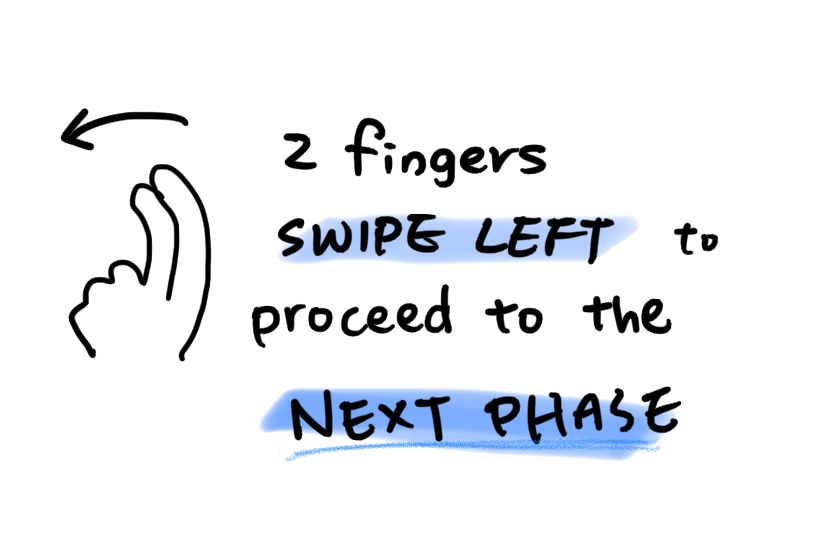 2 fingers
SWIPE LEFT to
proceed to the
NEXT PHASE